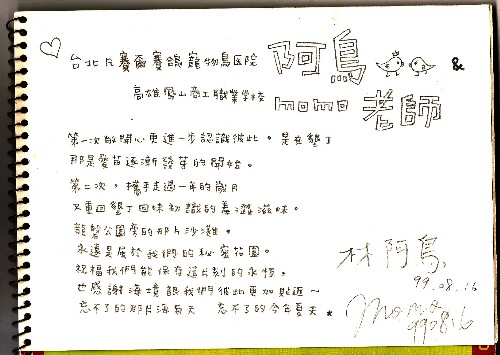 台北凡賽爾賽鴿寵物鳥医院 阿鳥 &
高雄鳳山商工職業學校 momo 老師
第一次的關心更進一步認識彼此，是在墾丁
那是愛苗逐漸發芽的開始。
第二次，攜手走過一年的歲月
又重回墾丁回味初識的羞澀滋味。
龍磐公園旁的那片沙灘。
永遠是屬於我們的秘密花園。
祝福我們能保存這片刻的永恆。
也感謝海境讓我們彼此更加貼近～
忘不了的那片海與天 忘不了的今色夏天
林阿鳥
99.08.16
momo
99.08.16